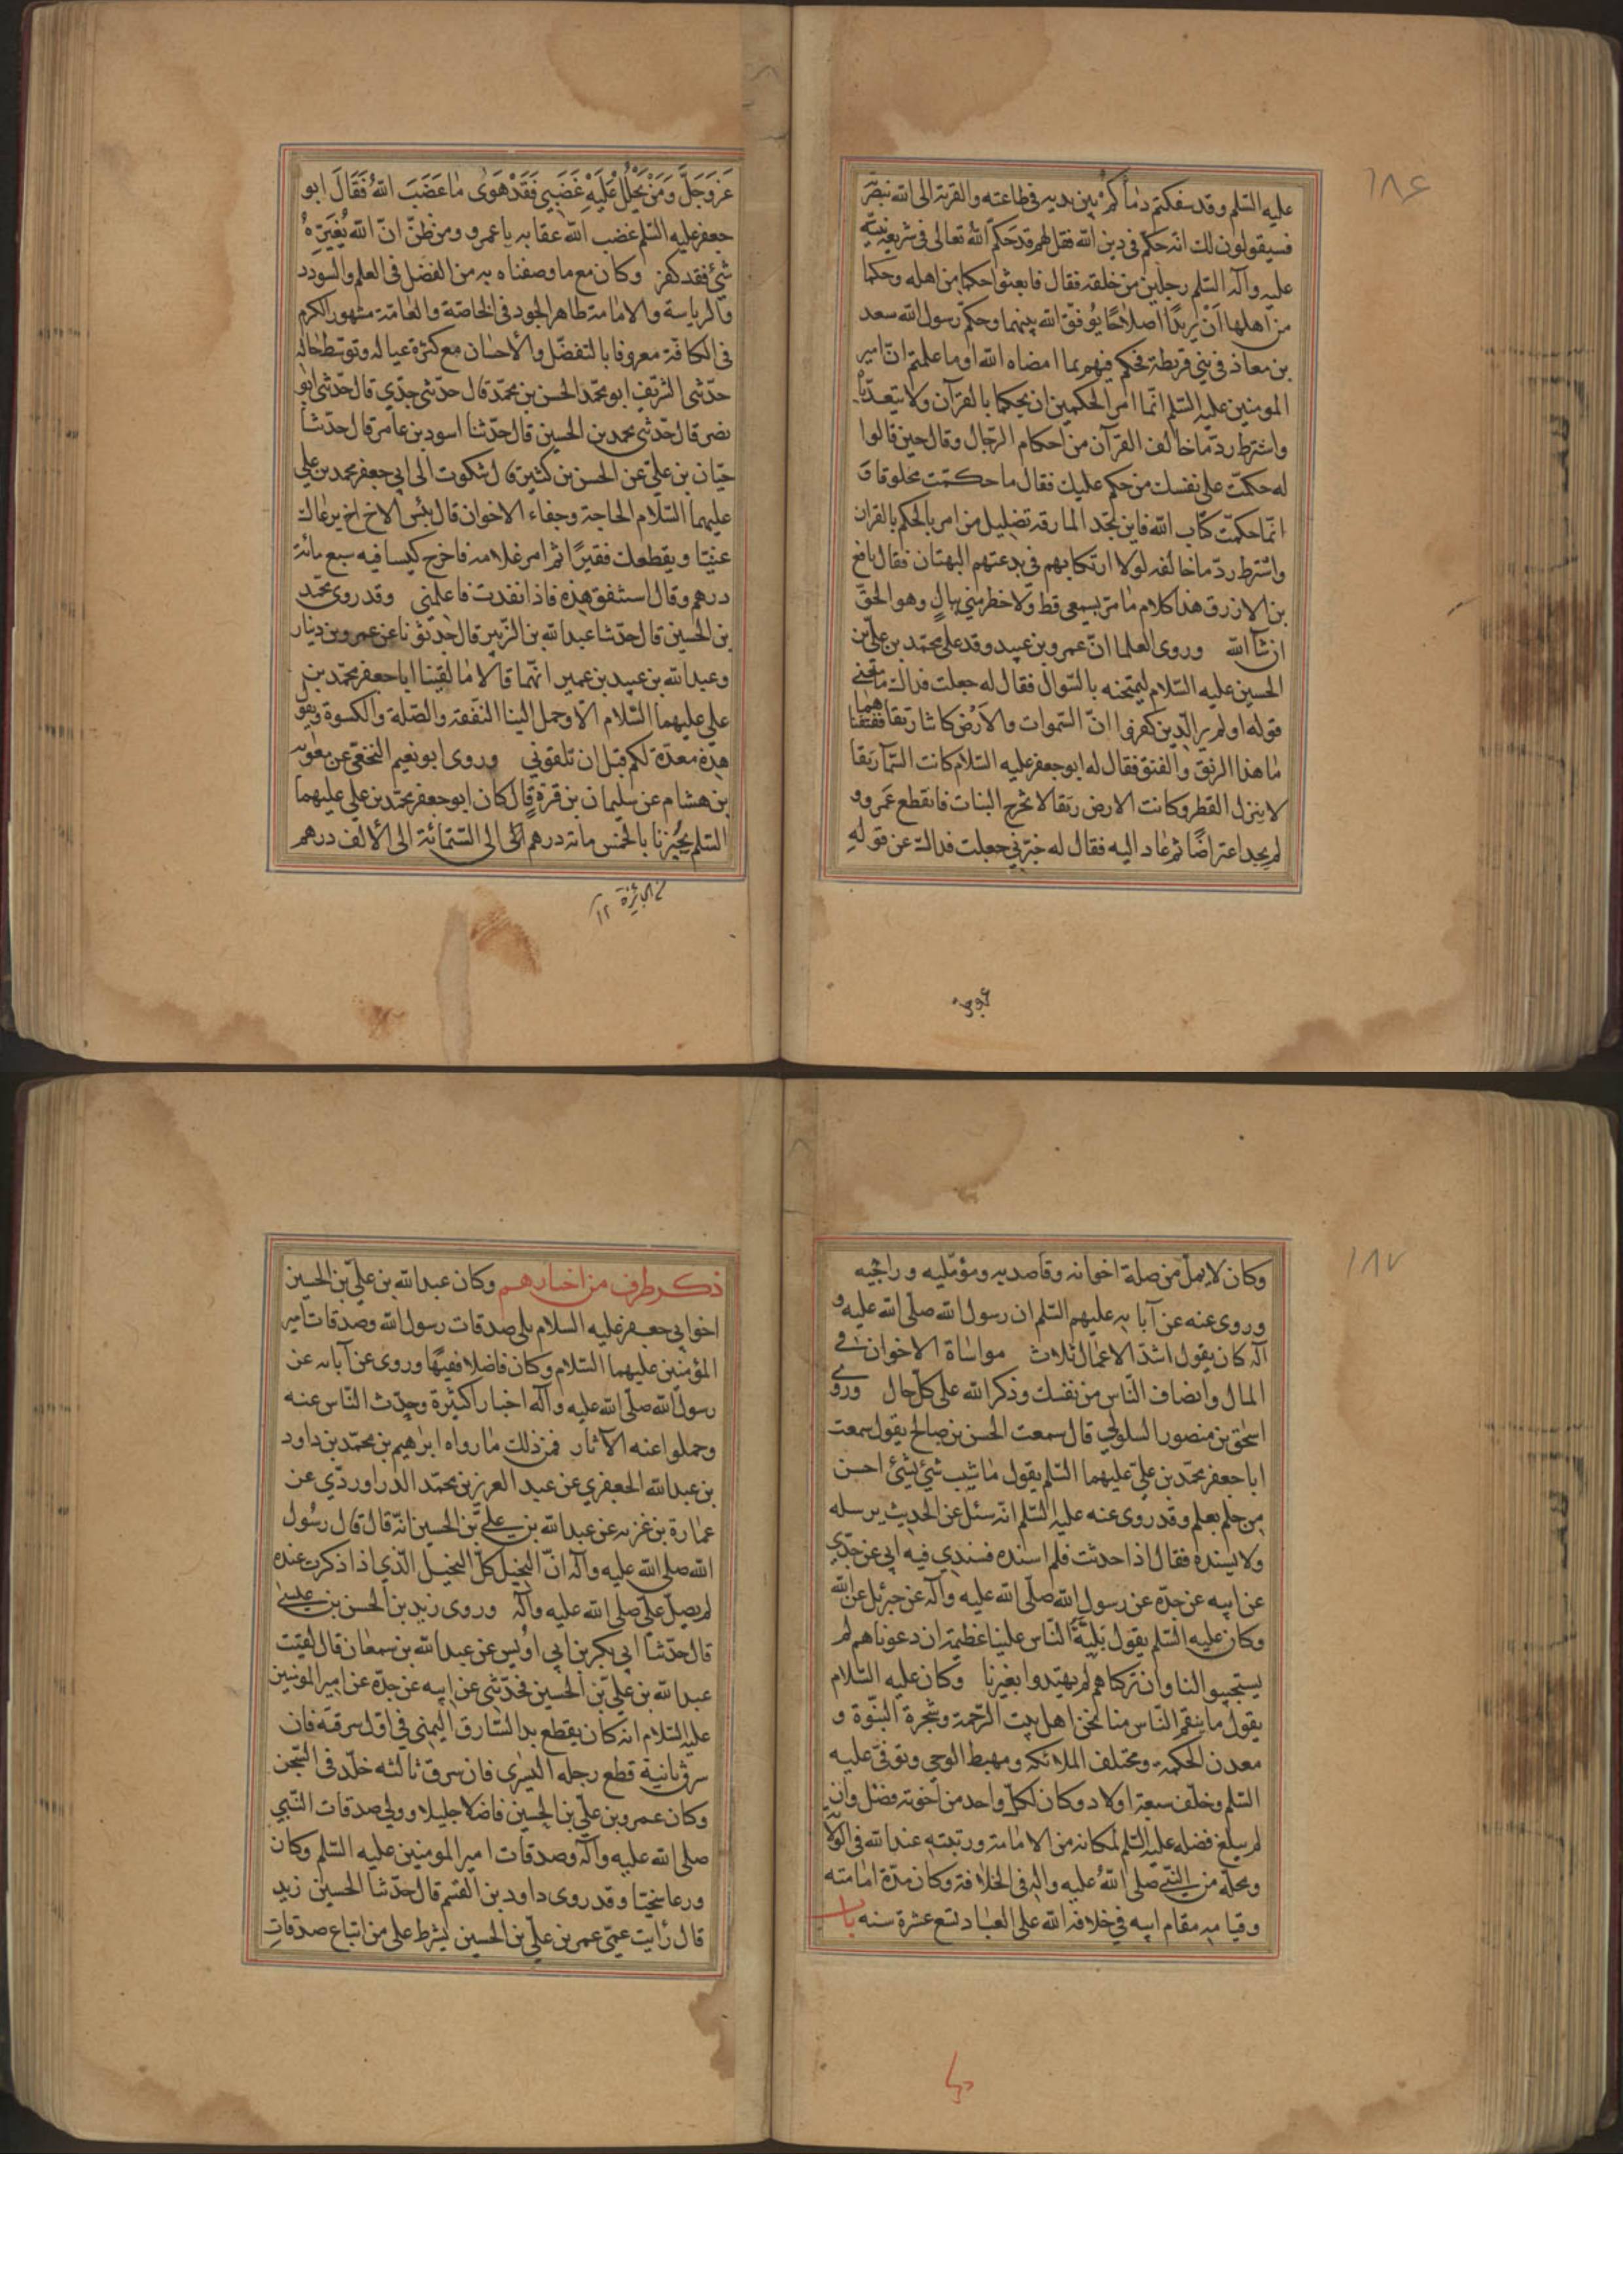 ١٨٦
عليه السّلم وقد سفكتم دماءكم بين يديه في طاعته والقربة الى الله بنصرته
فسيقولون لك انه حكّم في دين الله فقل لهم قد حكّم الله تعالى في شريعة نبيّه
عليه وآله السّلم رجلين من خلقه فقال فابعثوا حكما من اهله وحكما
من اهلها اَنْ يُريدا اصلاحًا يُوفّق الله بينهما وحكّم رسول الله سعد
بن معاذ في بني قريظة فحكم فيهم بما امضاه الله اوما علمتم ان امير
المومنين عليه السّلم انّما امر الحكمين ان يحكما بالقرآن ولا يتعدّياه
واشترط ردّ ما خالف القرآن من احكام الرّجال وقال حين قالوا
له حكّمت على نفسك من حكم عليك فقال ما حكّمت مخلوقا و
انّما حكّمت كتاب الله فاين تجد المارقة تضليل من امر بالحكم بالقران
واشترط ردّ ما خالفه لولا ارتكابهم في بدعتهم البهتان فقال نافع
بن الازرق هذا كلام ما مرّ بسمعي قط ولا خطر منّي ببالٍ وهو الحقّ
ان شآ الله وروى العلما انّ عمرو بن عبيد وفد على محمّد بن عليّ بن
الحسين عليه السّلام ليمتحنه بالسّوال فقال له جعلت فداك ما معنى
قوله اولم ير الّذين كفروا انّ السّموات والاَرْض كانتا رتقا ففتقناهما
ما هذا الرتق والفتق فقال له ابو جعفر عليه السّلام كانت السّمآ رتقا
لا ينزل القطر وكانت الارض رتقا لا تخرج النبات فانقطع عَمرو و
لم يجد اعتراضًا ثم عاد اليه فقال له خبّرني جعلت فداك عن قوله
عَزوَجَلَّ وَمَنْ يَحْلِلْ عَلَيْهِ غَضَبِي فَقَدْ هَوىٰ مٰا غَضَبَ اللّهُ فَقَالَ ابو
جعفر عليه السّلم غضب الله عقابه يا عمرو ومن ظنّ انّ الله يُغَيِّرهُ
شئ فقد كفر وكان مع ما وصفناه به من الفضل في العلم والسودد
والرياسة والامامة ظاهر الجود في الخاصّة والعامّة مشهور الكرم
في الكافّة معروفا بالتفضّل والاحسان مع كثرة عياله وتوسّط حاله
حدّثني الشريف ابو محمّد الحسن بن محمّد قال حدّثني جدّي قال حدّثني ابو
نصر قال حدّثني محمد بن الحسين قال حدّثنا اسود بن عامر قال حدّثنا
حيّان بن عليّ عن الحسن بن كثير قال شكوت الى ابي جعفر محمد بن علي
عليهما السّلام الحاجة وجفاء الاخوان قال بئس الاخ اخ يرعاك
غنيّا ويقطعك فقيرًا ثم امر غلامه فاخرج كيسا فيه سبع مائة
درهم وقال استنفق هذه فاذا نفدت فاعلمني وقد روى محمّد
بن الحسين قال حدّثنا عبد الله بن الزّبير قال حدّثونا عن عمرو بن دينار
وعبد الله بن عبيد بن عمير انّهما قالا ما لقينا ابا جعفر محمّد بن
علي عليهما السّلام الاّ وحمل الينا النفقة والصّلة والكسوة ويقو
هذه معدّة لكم قبل ان تلقوني وروى ابو نعيم النخعي عن معويه
بن هشام عن سليمان بن قرةٍ قال كان ابو جعفر محمّد بن علي عليهما
السّلم يُجيزنا بالخمس مائة درهم الى الستّمائة الى الألف درهم
من الجائزة ١٢
١٨٧
وكان لا يملّ من صلة اخوانه وقاصديه ومؤمّليه وراجيه
وروى عنه عن آبائه عليهم السّلم ان رسول الله صلّى الله عليه و
آله كان يقول اشدّ الاعمال ثلاث مواساة الاخوان في
المال وانصاف النّاس من نفسك وذكر الله على كلّ حال وروى
اسحٰق بن منصور السلولي قال سمعت الحسن بن صالح يقول سمعت
ابا جعفر محمّد بن عليّ عليهما السّلم يقول ما شيب شئ بشئ احسن
من حلم بعلم وقد روى عنه عليه السّلم انّه سئل عن الحديث يرسله
ولا يسنده فقال اذا حدثت فلم اسنده فسندي فيه ابي عن جدّي
عن ابيه عن جدّه عن رسول الله صلّى الله عليه وآله عن جبرئل عن الله
وكان عليه السّلم يقول بَليّةُ النّاس علينا عظيمة ان دعوناهم لم
يستجيبوا لنا وان تركناهم لم يهتدوا بغيرنا وكان عليه السّلام
يقول ما ينقم النّاس منا نحن اهل بيت الرّحمة وشجرة النبّوة و
معدن الحكمة ومختلف الملائكة ومهبط الوحي وتوفّى عليه
السّلم وخلّف سبعة اولاد وكان لكلّ واحد من اخوته فضل وان
لم يبلغ فضله عليه السّلم لمكانه من الامامة ورتبته عند الله في الولا
ومحلّه من النّبي صلى اللهُ عليه واله في الخلافة وكان مدّة امامته
وقيامه مقام ابيه في خلافة الله على العباد تسع عشرة سنه باب
ذكر طرف من اخبارهم وكان عبد الله بن عليّ بن الحسين
اخو ابي جعفر عليه السلام يلي صدقات رسول الله وصدقات امير
المؤمنين عليهما السّلام وكان فاضلا فقيهًا وروى عن آبائه عن
رسول الله صلى الله عليه وآله اخبارا كثيرة وحدّث النّاس عنه
وحملوا عنه الآثار فمن ذلك ما رواه ابرٰهيم بن محمّد بن داود
بن عبد الله الجعفري عن عبد العزيز بن محمّد الدراوردّي عن
عمارة بن غزيه عن عبد الله بن علي بن الحسين انّه قال قال رسُول
الله صلى الله عليه وآله انّ البخيل كلّ البخيل الّذي اذا ذكرت عنده
لم يصلّ عليّ صلى الله عليه وآله وروى زيد بن الحسن بن عيسى
قال حدّثنا ابي بكر بن ابي اُويس عن عبد الله بن سمعان قال لقيت
عبد الله بن علي بن الحسين فحدّثني عن ابيه عن جدّه عن امير المومنين
عليه السّلام انه كان يقطع يد السّارق اليمنى في اوّل سرقته فان
سرق ثانية قطع رجله اليسرى فان سرق ثالثه خلّد في السّجن
وكان عمرو بن عليّ بن الحسين فاضلا جليلا وولي صدقات النّبي
صلى الله عليه وآله وصدقات امير المومنين عليه السّلم وكان
ورعا سخيّا وقد روى داود بن القسم قال حدّثنا الحسين زيد
قال رايت عمّي عمر بن عليّ بن الحسين يشرط على من ابتاع صدقات